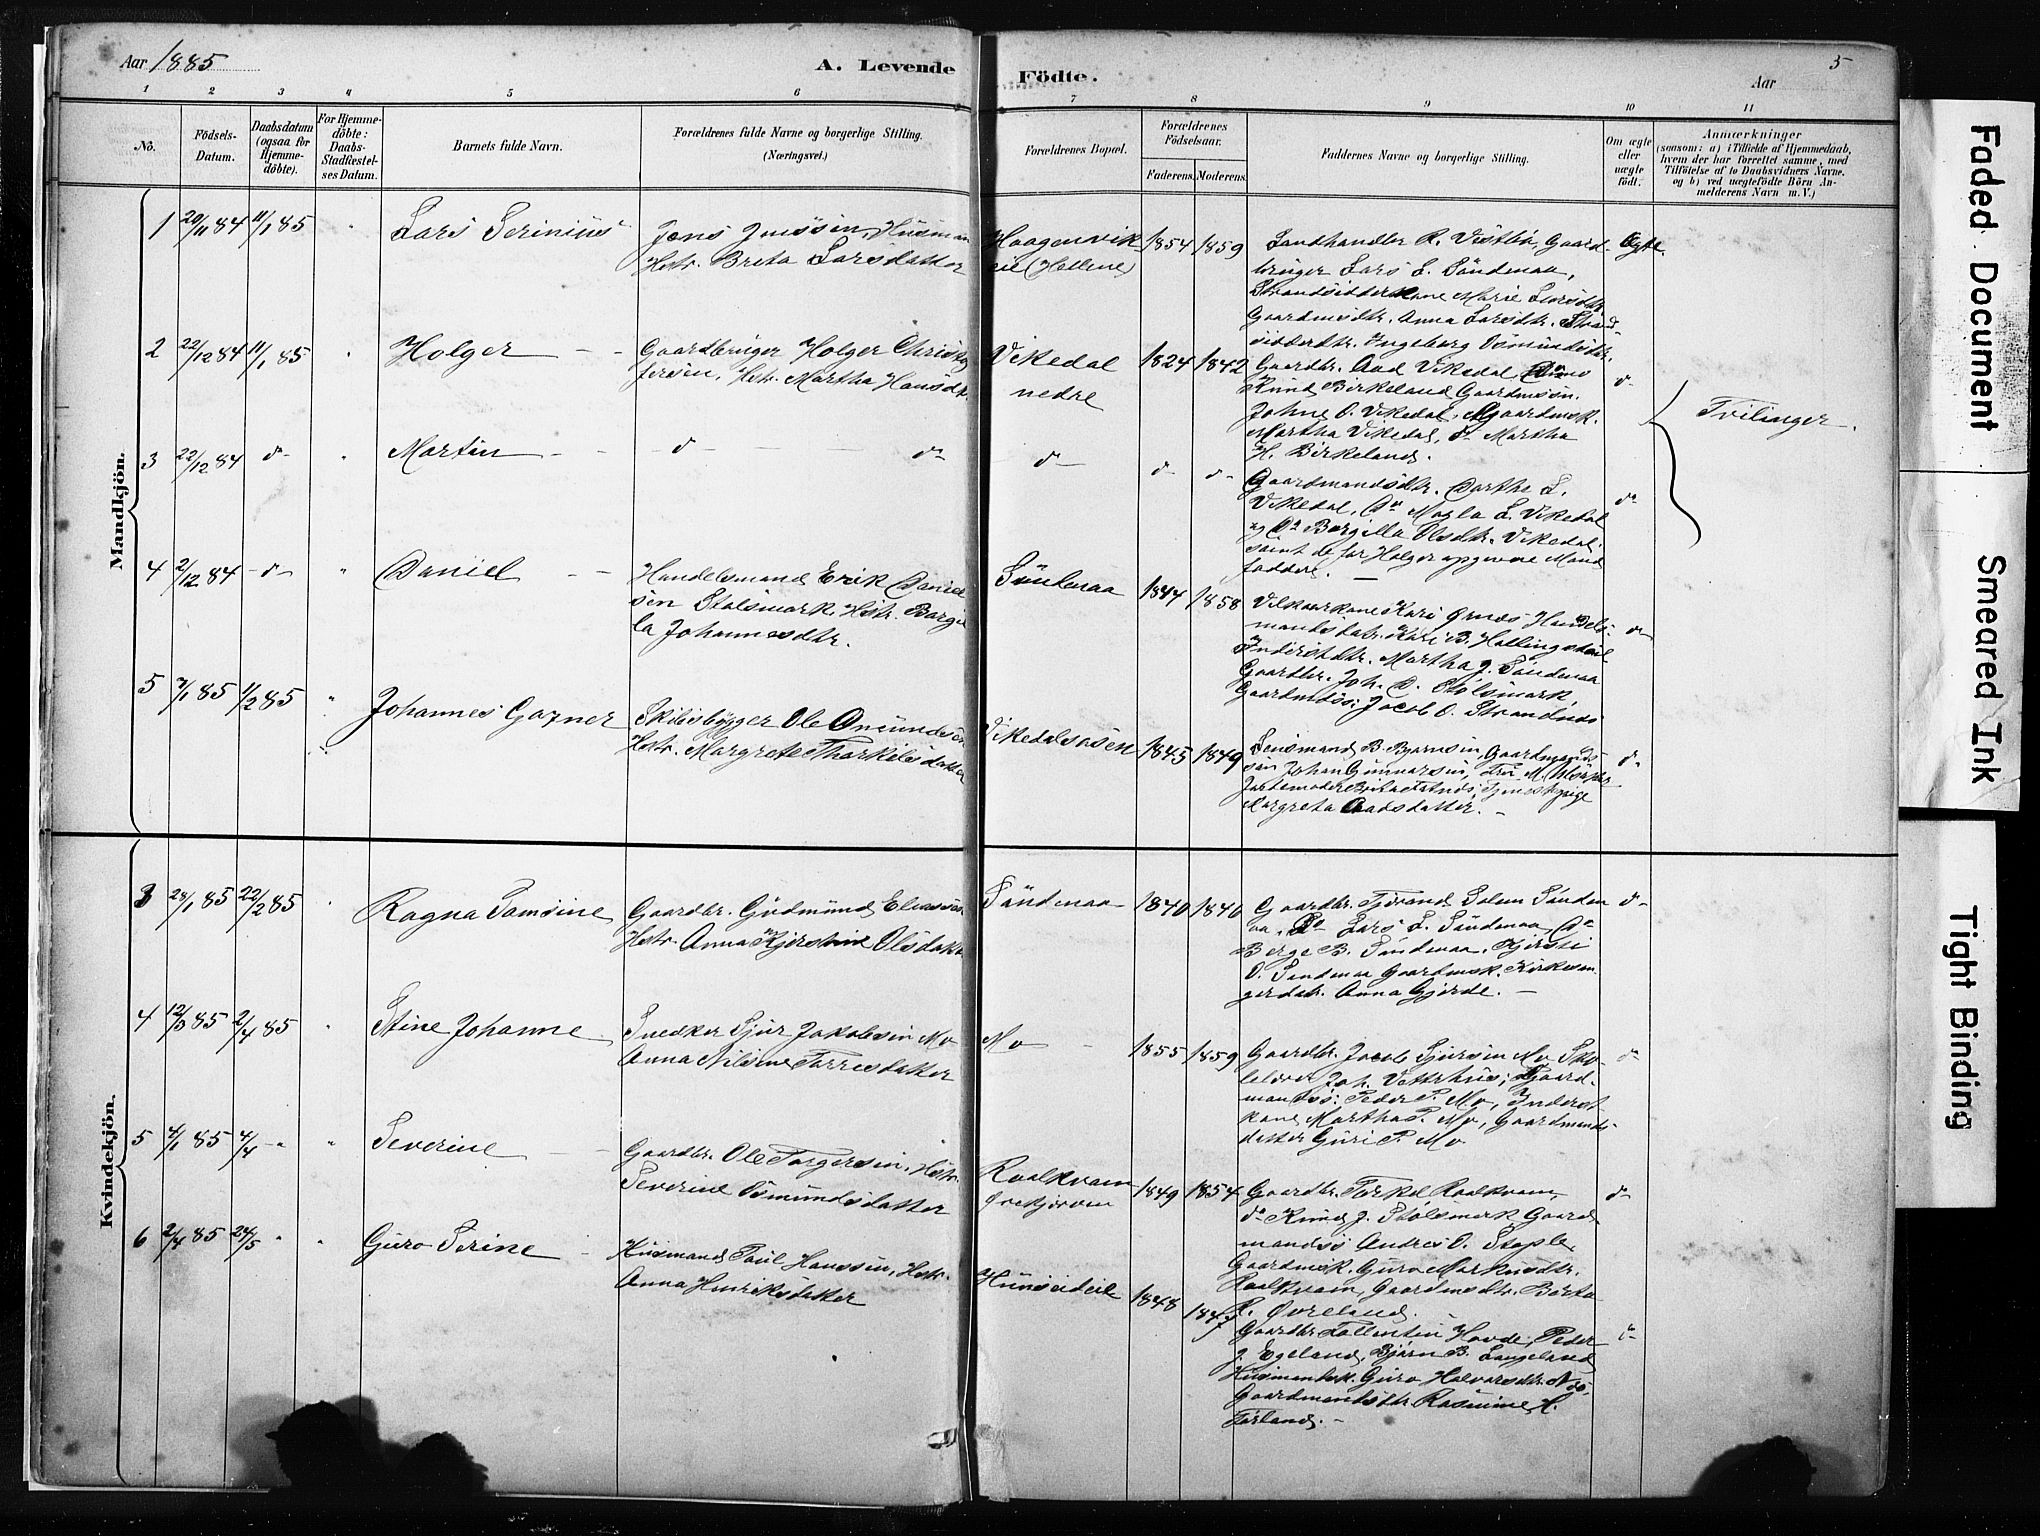 Aar 1885
A. Levende Födte.
5
Aar
1 2 3 4 5 6 7 8 9 10 11
No.
Födsels-Datum.
Daabsdatum (ogsaa for Hjemme-döbte).
For Hjemme-döbte: Daabs-Stadfæstel-ses Datum.
Barnets fulde Navn.
Forældrenes fulde Navne og borgerlige Stilling. (Næringsvei.)
Forældrenes Bopæl.
Forældrenes Födselsaar.
Faderens. Moderens.
Faddernes Navne og borgerlige Stilling.
Om ægte eller uægte födt.
Anmærkninger
(saasom: a) i Tilfælde af Hjemmedaab, hvem der har forrettet samme, med Tilföielse af to Daabsvidners Navne, og b) ved uægtefödte Börn An-melderens Navn m. V.)
Mandkjön.
1 20/11 84 11/1 85
Lars Serinius
Jens Jenssen, Husman
Hstr. Breta Larsdatter
Haagenvik
eie (Hellene)
1854 1859
Landhandler R. Vestbø, Gaard-
bruger Lars L. Söndenaa,
Strandsidderkone Marie Larsdtr
Gaardmdtr. Anna Larsdtr. Strand-
sidderdtr. Ingeborg Osmundsdtr.
Ægte.
2 22/12 84 11/1 85
Holger
Gaardbruger Holger Christof
fersen, Hstr. Martha Hansdtr.
Vikedal
nedre
1824 1842
Gaardbr. Aad Vikedal, Do
Knud Birkeland Gaardmsön.
Johne O. Vikedal, Gaardmsk.
Martha Vikedal, do Martha
H. Birkeland.
do
Tvilinger.
3 22/12 84 do
Martin
do do
do
do do
Gaardmandsdtr. Barthe L.
Vikedal, Do Magla L. Vikedal
og Do Bergilla Olsdtr. Vikedal.
samt de for Holger opgivne Mand
faddere.
do
4 2/12 84 do
Daniel
Handelsmand Erik Daniel
sen Stølsmark, Hstr. Bergi
la Johannesdtr.
Söndenaa
1844 1858
Vilkaarkone Kari Ørnes Handels-
mandsdatr. Kari B. Hallingsdeil
Inderstdtr. Martha J. Söndenaa
Gaardbr. Joh. D. Stølsmark,
Gaardmdss: Jacob O. Strandnes
do
5 7/1 85 1/2 85
Johannes Gasner
Skibsbygger Ole Omundsen
Hstr. Margrete Tharkilsdatter
Vikedalsosen
1845 1849
Lensmand B. Bjørnsen, Gaardmands
søn Johan Gunnarsen, Fru M.
Jordemoder Berta Fatnes, Tjenestepige
Margreta Aadsdatter.
do
Kvindekjön.
3 28/1 85 22/2 85
Ragna Tomsine
Gaardbr. Gudmund Eliassen
Hstr. Anna Kjerstine Olsdatter
Söndenaa
1840 1840
Gaardbr. Tjörand Solem Sönden
aa. Do Lars L. Söndenaa, Do
Berge B. Söndenaa, Kjersti
O. Söndenaa Gaardmsk. Kirkesan
gerdatr. Anna Gjerde.
do
4 12/3 85 2/4 85
Stine Johanne
Snedker Sjur Jakobsen Mo
Anna Nilsine Torresdatter
Mo
1855 1859
Gaardbr. Jacob Sjursen Mo Sko
lelærer Joh. Vetrhus; Gaard-
mandss: Peder P. Mo, Inderst-
kone Martha P. Mo, Gaardmands-
datter Guri P. Mo
do
5 4/1 85 4/4
Severine
Gaardbr. Ole Torgersen, Hstr.
Severine Osmundsdatter
Raalkvam
Ørekjørven
1849 1854
Gaardbr. Torkel Raalkvam,
do Knud J. Stølsmark Gaard
mandss Andres O. Stople,
Gaardmsk. Guro Markusdtr.
Raalkvam, Gaardmsdtr. Berta
R. Øvreland.
do
6 2/4 85 24/5
Guro Serine
Husmand Paul Hanssen, Hstr.
Anna Henriksdatter
Hunseideie
1848 1847
Gaardbr Tollentin Hovde, Peder
J. Egeland, Bjørn B. Langeland
Husmandsk. Guro Halvorsdtr.
Gaardmandsdtr Rasmine H.
Førland.
do
Faded Document
Smeared Ink
Tight Binding